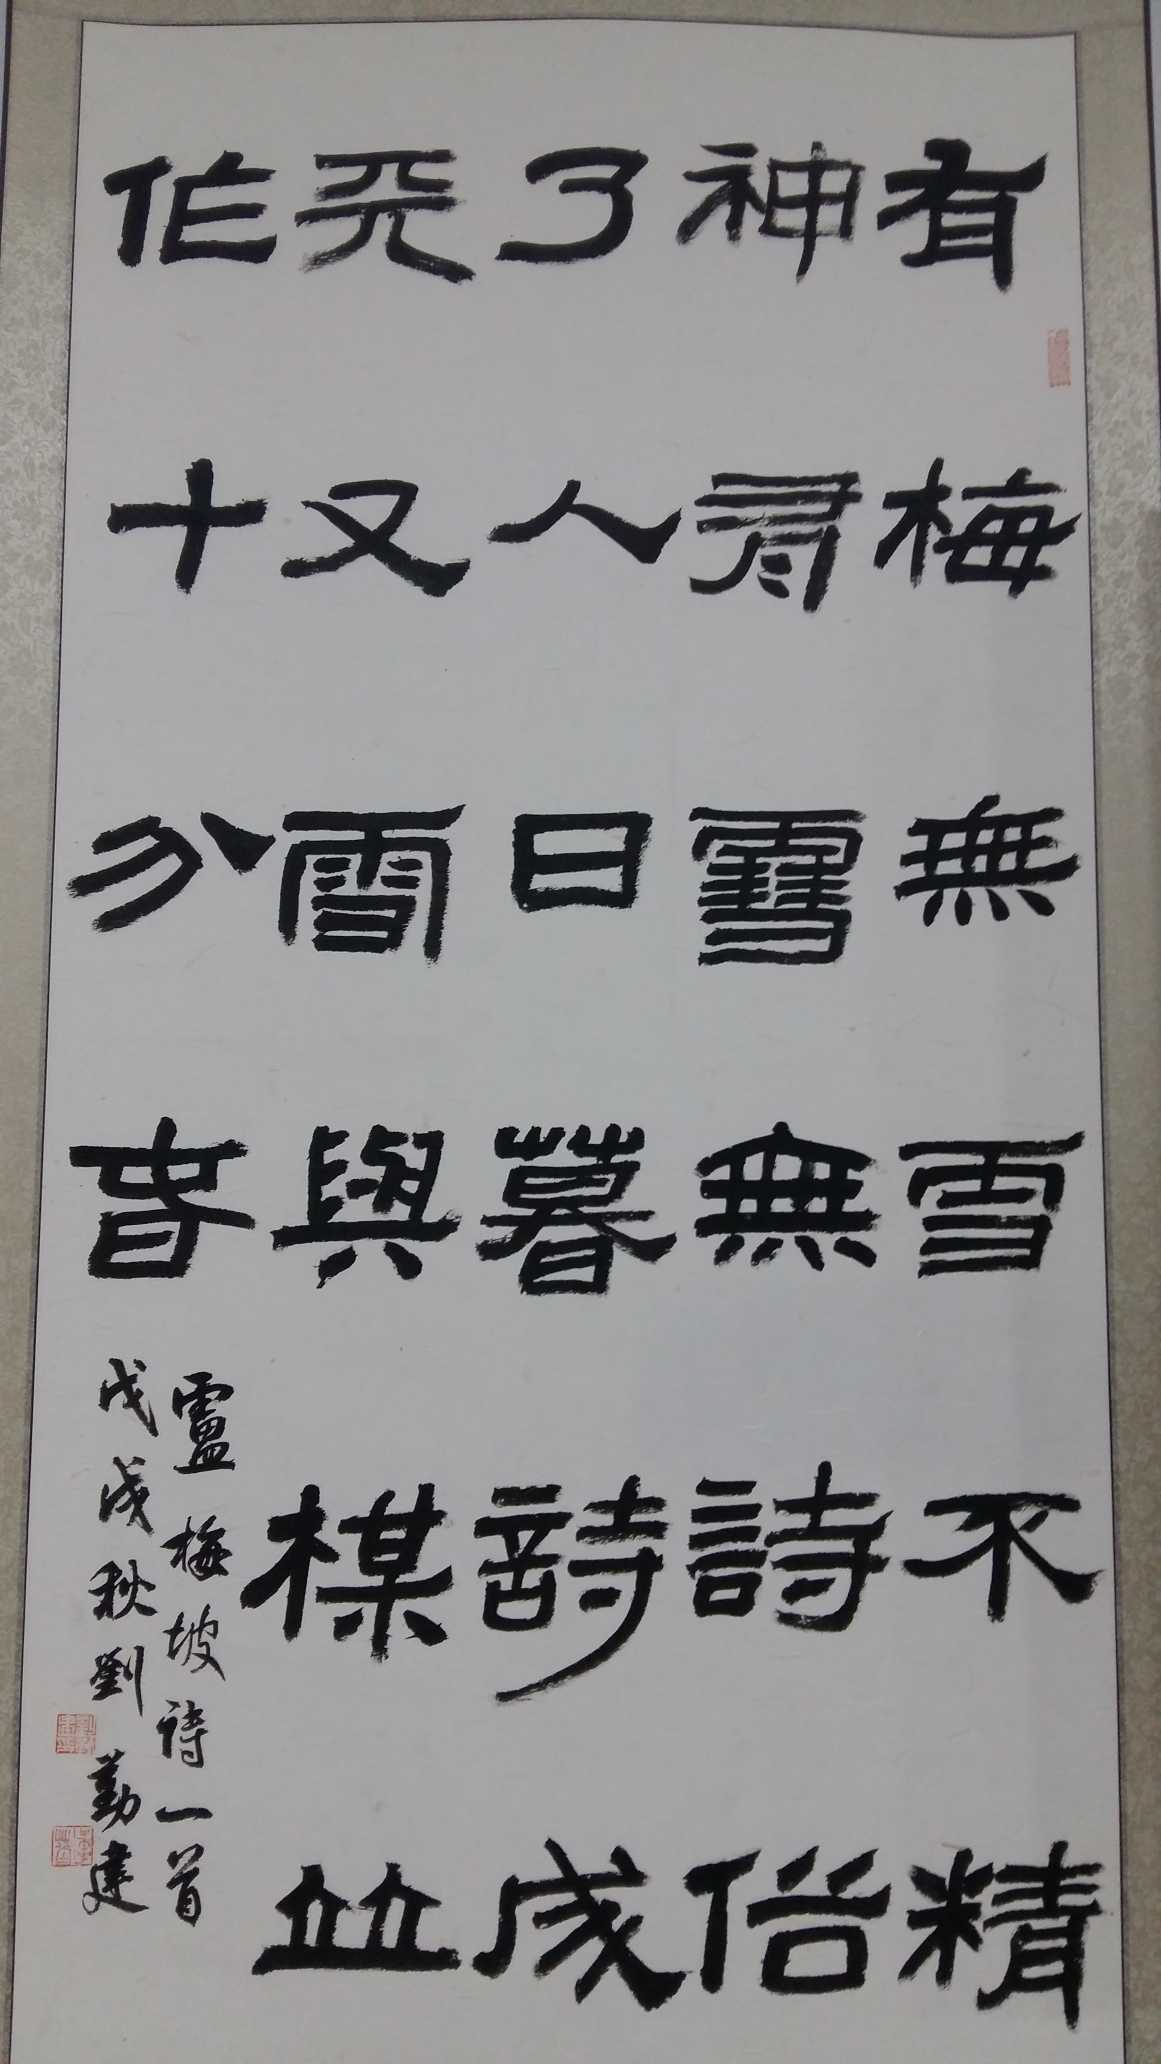 有梅無雪不精
神有雪無詩俗
了人日暮詩成
天又雪與楳竝
作十分春
盧梅坡詩一首
戊戌秋劉勤建